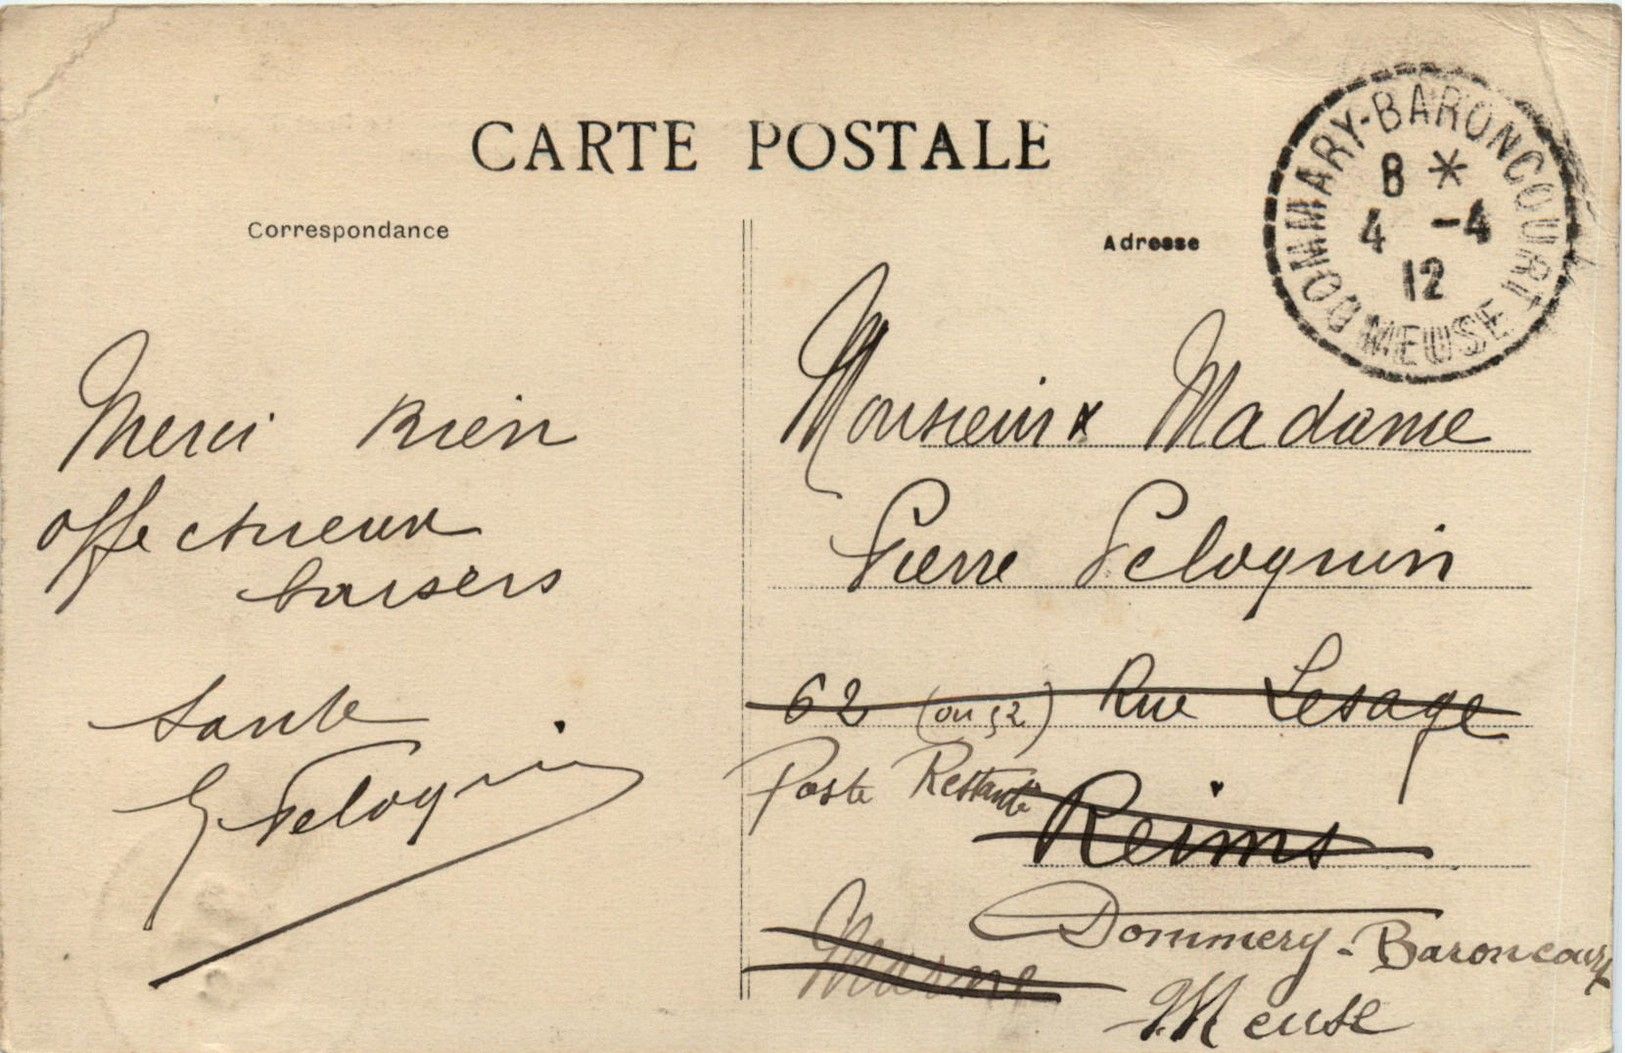 CARTE POSTALE
Correspondance
Adresse
DOMMARY-BARONCOURT
8 *
4 -4
12
MEUSE
Merci Bien
affectueux
baisers
Santé
G Peloquin
Monsieur & Madame
Pierre Peloquin
62 (ou 52) Rue Lesage
Poste Restante
Reims
Marne
Dommery-Baroncourt
Meuse